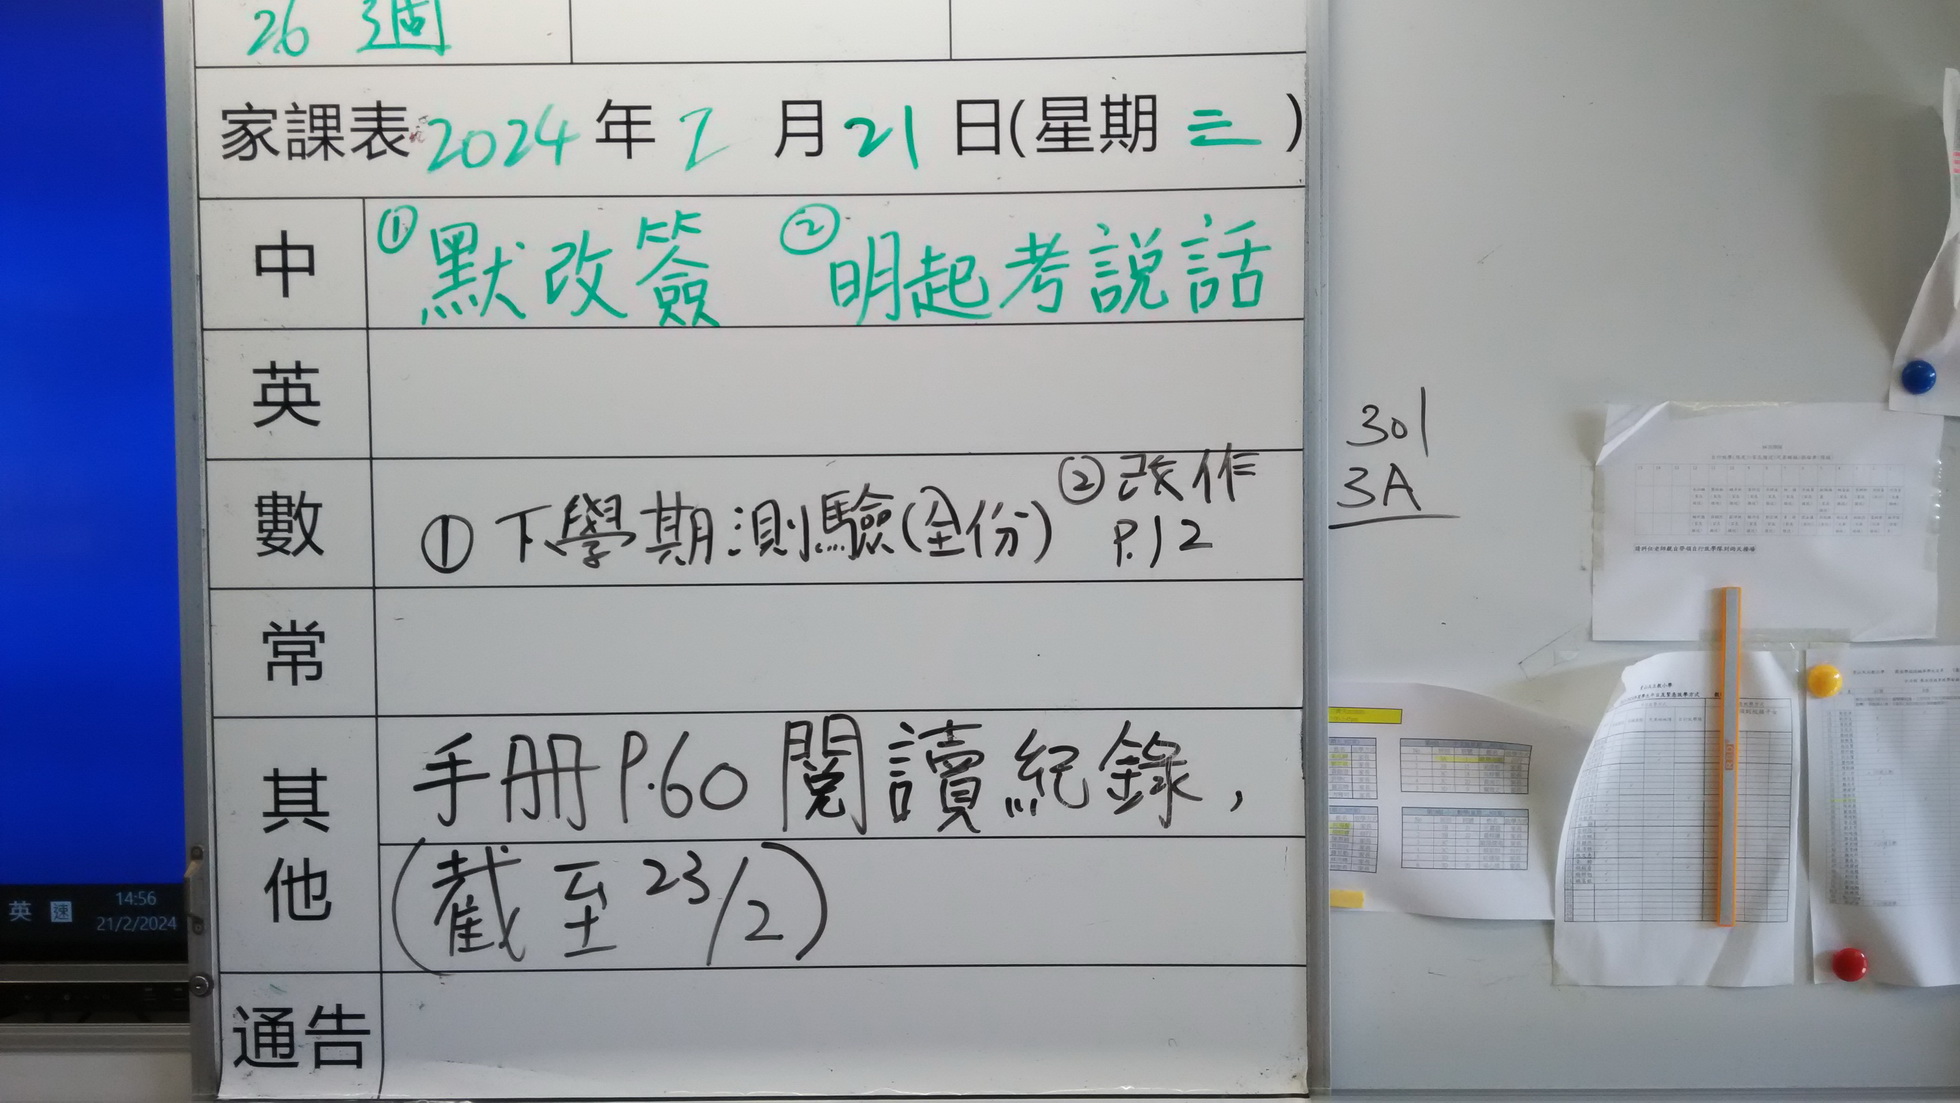 26 週
家課表 2024 年 2 月 21 日(星期 三 )
中 ①默改簽 ②明起考說話
英
數 ①下學期測驗(全份) ②改作 P.12
常
其他 手册P.60 閱讀紀錄,
(截至 23/2)
通告
301
3A
英 速 14:56
21/2/2024